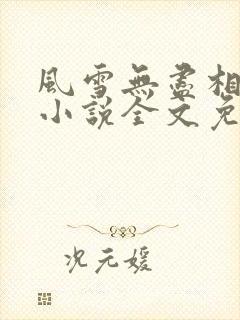 風雪無盡相
小說全文免
况元媛